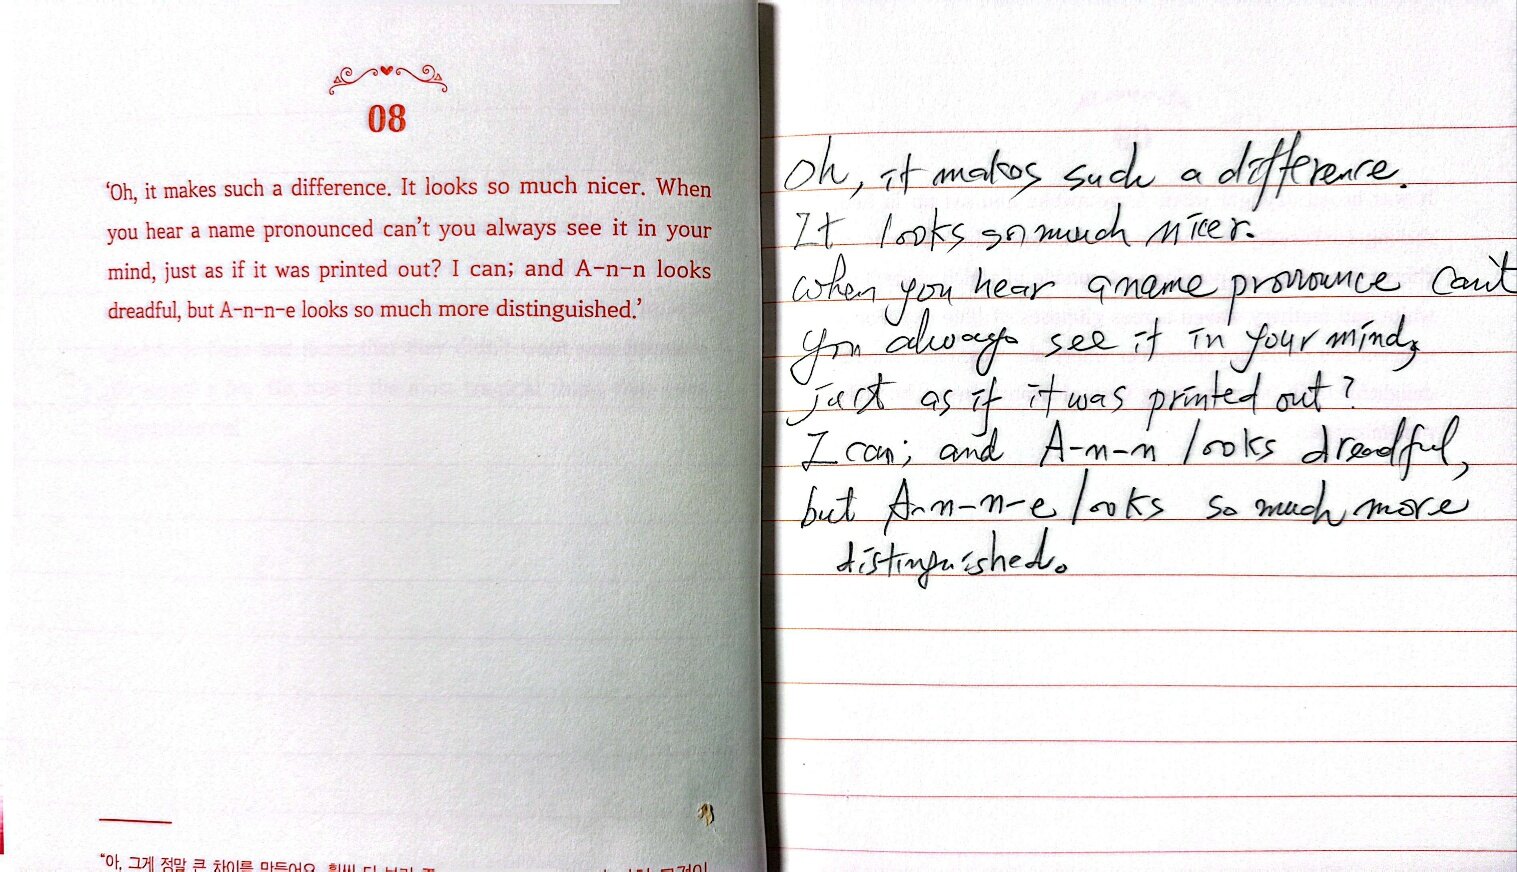 08
'Oh, it makes such a difference. It looks so much nicer. When
you hear a name pronounced can't you always see it in your
mind, just as if it was printed out? I can; and A-n-n looks
dreadful, but A-n-n-e looks so much more distinguished.'
"아, 그게 정말 큰 차이를 만들어요. 훨씬 더
Oh, it makes such a difference.
It looks so much nicer.
when you hear a name pronounce can't
you always see it in your mind,
just as if it was printed out?
I can; and A-n-n looks dreadful,
but A-n-n-e looks so much more
distinguished.